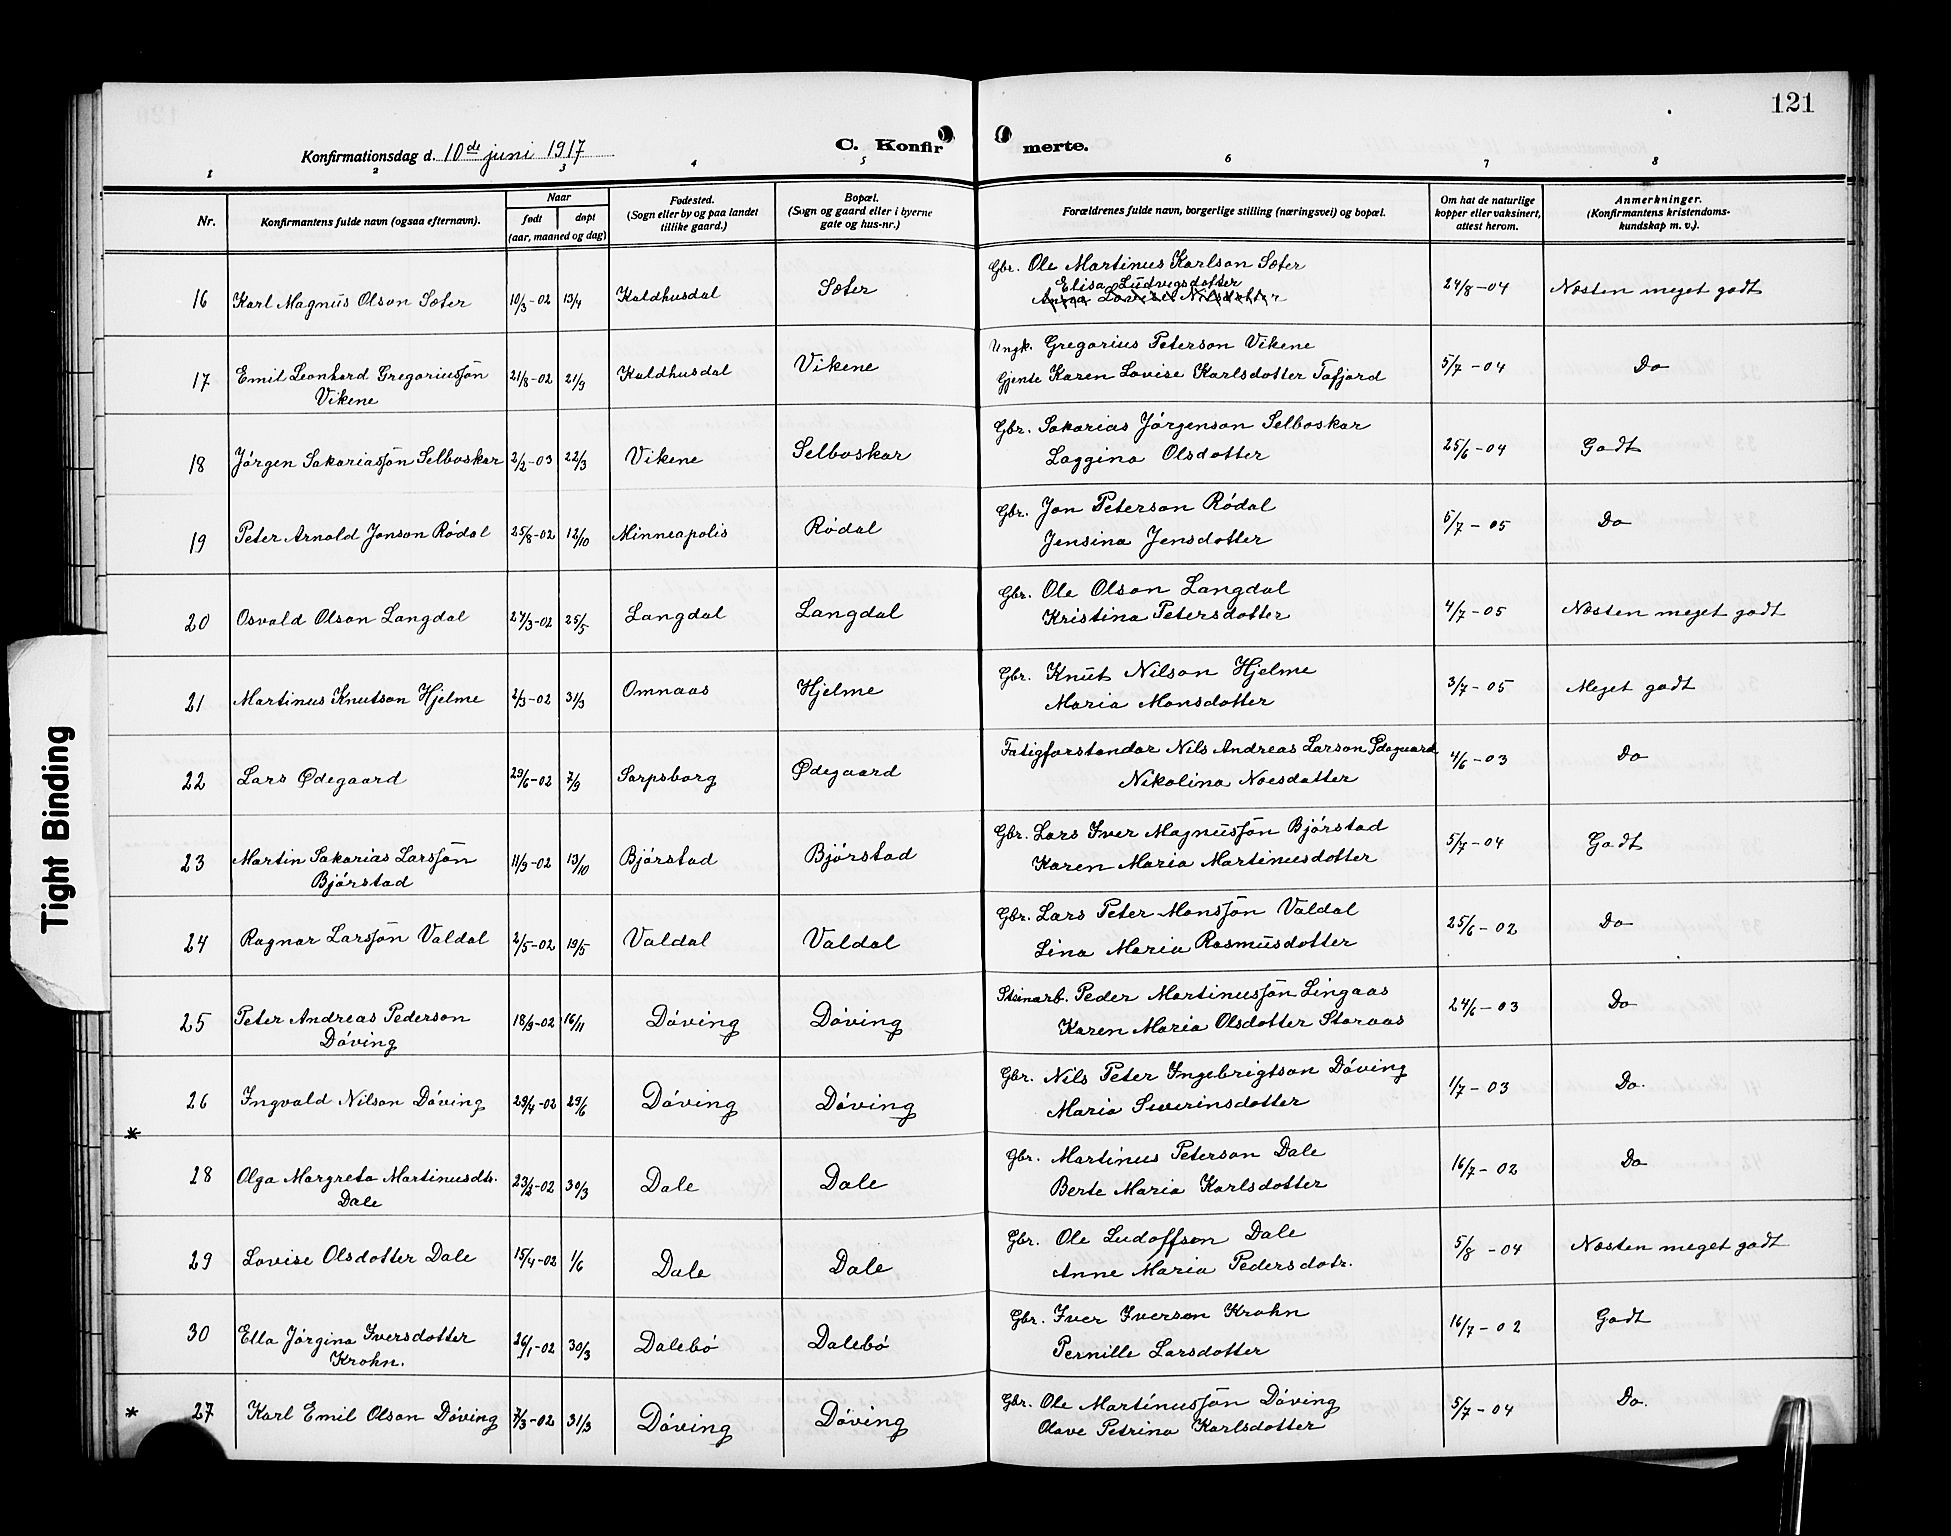 121
Konfirmationsdag d. 10de juni 1917
C. Konfirmerte.
1 2 3 4 5 6 7 8
Nr.
Konfirmantens fulde navn (ogsaa efternavn).
Naar
født døpt
(aar, maaned og dag)
Fødested.
(Sogn eller by og paa landet
tillike gaard.)
Bopæl.
(Sogn og gaard eller i byerne
gate og hus-nr.)
Forældrenes fulde navn, borgerlige stilling (næringsvei) og bopæl.
Om hat de naturlige
kopper eller vaksinert,
attest herom.
Anmerkninger.
(Konfirmantens kristendoms-
kundskap m. v.).
16 Karl Magnus Olson Sæter 10/3-02 13/4 Kaldhusdal Sæter Gbr. Ole Martinus Karlson Sæter 24/8-04 Næsten meget godt
Elisa Ludvigsdotter
Anna Lovise Nilsdotter
17 Emil Leonhard Gregoriussøn 21/8-02 21/9 Kaldhusdal Vikene Ungk. Gregorius Peterson Vikene 5/7-04 Do
Vikene Gjente Karen Lovise Karlsdotter Tafjord
18 Jørgen Sakariassøn Selboskar 2/2-03 22/3 Vikene Selboskar Gbr. Sakarias Jørgenson Selboskar 25/6-04 Godt
Laggina Olsdotter
19 Peter Arnold Jonson Rødal 25/8-02 12/10 Minneapolis Rødal Gbr. Jon Peterson Rødal 5/7-05 Do
Jensina Jensdotter
20 Osvald Olson Langdal 27/3-02 25/5 Langdal Langdal Gbr. Ole Olson Langdal 4/7-05 Næsten meget godt
Kristina Petersdotter
21 Martinus Knutson Hjelme 2/3-02 31/3 Omnaas Hjelme Gbr. Knut Nilson Hjelme 3/7-05 Meget godt
Maria Monsdotter
22 Lars Ødegaard 29/6-02 7/9 Sarpsborg Ødegaard Fatigforstandar Nils Andreas Larson Ødegaard 4/6-03 Do
Nikolina Noesdatter
23 Martin Sakarias Larssøn 11/9-02 13/10 Bjørstad Bjørstad Gbr. Lars Iver Magnussøn Bjørstad 5/7-04 Godt
Bjørstad Karen Maria Martinusdotter
24 Ragnar Larssøn Valdal 2/5-02 19/5 Valdal Valdal Gbr. Lars Peter Monssøn Valdal 25/6-02 Do
Lina Maria Rasmusdotter
25 Peter Andreas Pederson 18/9-02 16/11 Døving Døving Steinarb. Peder Martinussøn Lingaas 24/6-03 Do
Døving Karen Maria Olsdotter Storaas
26 Ingvald Nilson Døving 29/4-02 29/6 Døving Døving Gbr. Nils Peter Ingebrigtson Døving 1/7-03 Do.
Maria Severinsdotter
*
28 Olga Margreta Martinusdtr. 23/2-02 30/3 Dale Dale Gbr. Martinus Peterson Dale 16/7-02 Do
Dale Berte Maria Karlsdotter
29 Lovise Olsdotter Dale 15/4-02 1/6 Dale Dale Gbr. Ole Ludoffson Dale 5/8-04 Næsten meget godt
Anne Maria Pedersdotr.
30 Ella Jørgina Iversdotter 26/1-02 30/3 Dalebø Dalebø Gbr. Iver Iverson Krohn 16/7-02 Godt
Krohn. Pernille Larsdotter
* 27 Karl Emil Olson Døving 7/3-02 31/3 Døving Døving Gbr. Ole Martinussøn Døving 5/7-04 Do.
Olave Petrina Karlsdotter
Tight Binding